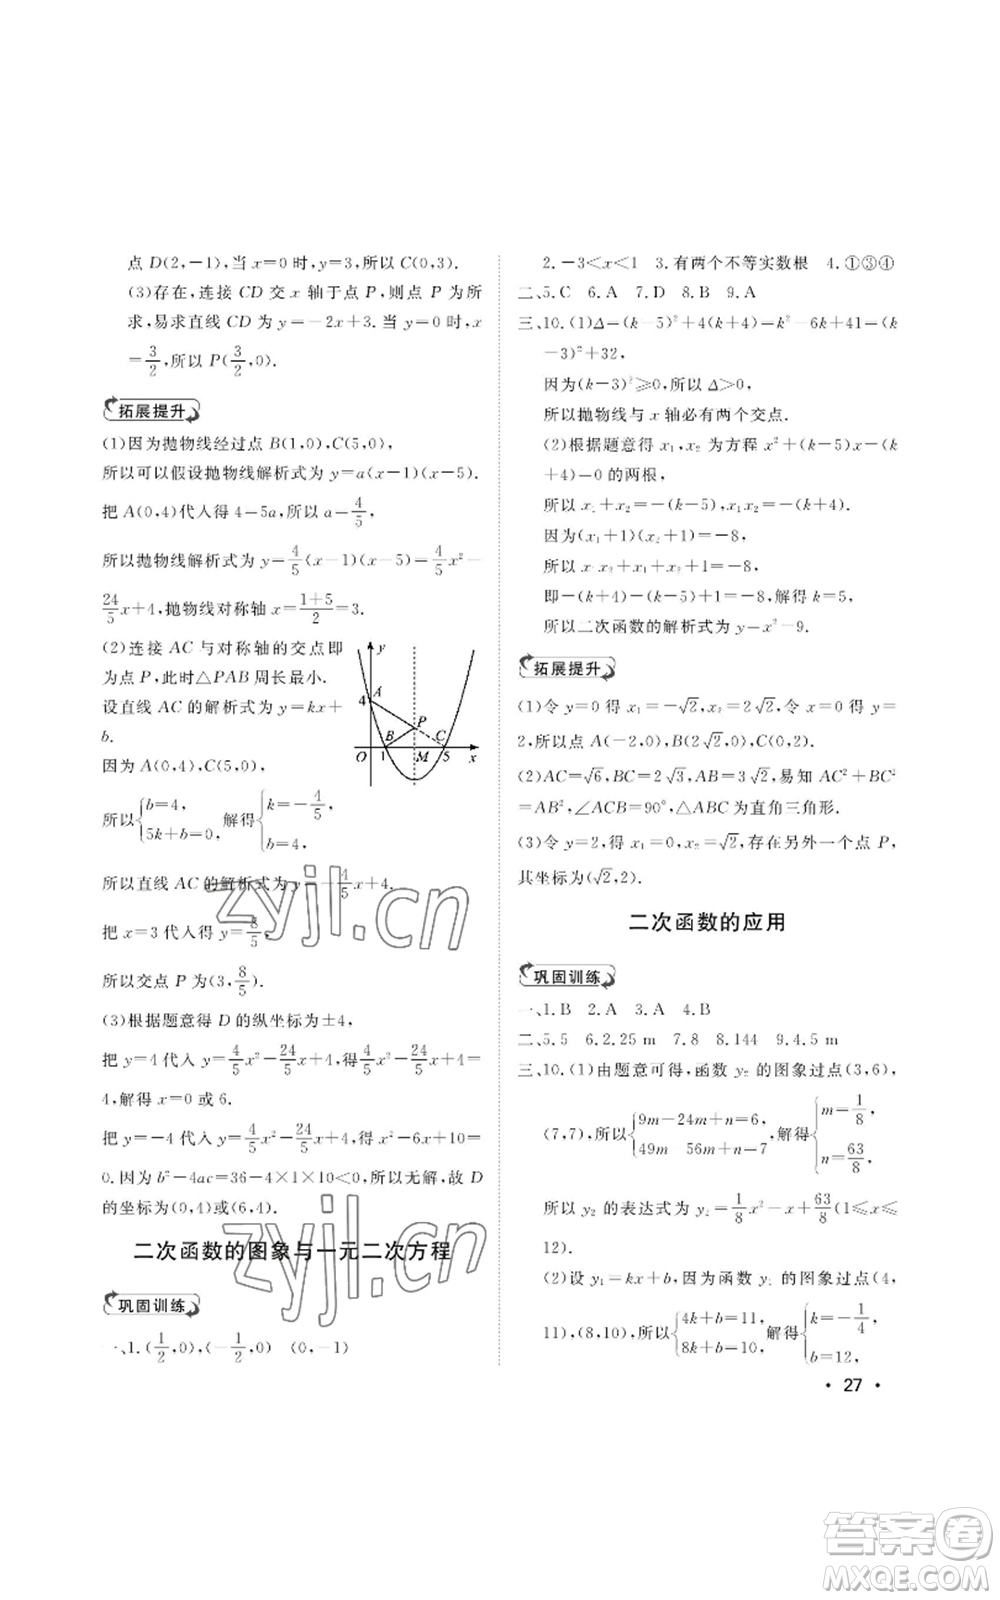 点 D(2,-1),当 x=0 时,y=3,所以 C(0,3).
(3)存在,连接 CD 交 x 轴于点 P,则点 P 为所
求,易求直线 CD 为 y=-2x+3.当 y=0 时,x
=3/2,所以 P(3/2,0).
拓展提升
(1)因为抛物线经过点 B(1,0),C(5,0),
所以可以假设抛物线解析式为 y=a(x-1)(x-5).
把 A(0,4)代人得 4-5a,所以 a-4/5,
所以抛物线解析式为 y=4/5(x-1)(x-5)=4/5x²-
24/5x+4,抛物线对称轴 x=(1+5)/2=3.
(2)连接 AC 与对称轴的交点即
为点 P,此时△PAB 周长最小.
设直线 AC 的解析式为 y=kx+
b.
因为 A(0,4),C(5,0),
所以{b=4, 5k+b=0, 解得{k=-4/5, b=4,
y
A
4
P
B
C
O
1
M
5
x
所以直线 AC 的解析式为 y--4/5x+4.
把 x=3 代人得 y=8/5,
所以交点 P 为(3,8/5).
(3)根据题意得 D 的纵坐标为±4,
把 y=4 代入 y=4/5x²-24/5x+4,得4/5x²-24/5x+4=
4,解得 x=0 或 6.
把 y=-4 代入 y=4/5x²-24/5x+4,得 x²-6x+10=
0.因为 b²-4ac=36-4×1×10<0,所以无解,故 D
的坐标为(0,4)或(6,4).
二次函数的图象与一元二次方程
巩固训练
一、1.(1/2,0),(-1/2,0) (0,-1)
2.-3<x<1 3.有两个不等实数根 4.①③④
二、5.C 6.A 7.D 8.B 9.A
三、10.(1)Δ=(k-5)²+4(k+4)=k²-6k+41=(k
-3)²+32,
因为(k-3)²≥0,所以 Δ>0,
所以抛物线与 x 轴必有两个交点.
(2)根据题意得 x₁,x₂ 为方程 x²+(k-5)x-(k
+4)-0 的两根,
所以 x₁+x₂=-(k-5),x₁x₂=-(k+4).
因为(x₁+1)(x₂+1)=-8,
所以 x₁x₂+x₁+x₂+1=-8,
即-(k+4)-(k-5)+1=-8,解得 k=5,
所以二次函数的解析式为 y-x²-9.
拓展提升
(1)令 y=0 得 x₁=-√2,x₂=2√2,令 x=0 得 y=
2,所以点 A(-√2,0),B(2√2,0),C(0,2).
(2)AC=√6,BC=2√3,AB=3√2,易知 AC²+BC²
=AB²,∠ACB=90°,△ABC 为直角三角形.
(3)令 y=2,得 x₁=0,x₂=√2,存在另外一个点 P,
其坐标为(√2,2).
二次函数的应用
巩固训练
一、1.B 2.A 3.A 4.B
二、5.5 6.2.25 m 7.8 8.144 9.4.5 m
三、10.(1)由题意可得,函数 y₂ 的图象过点(3,6),
(7,7),所以{9m-24m+n=6, 49m 56m+n=7, 解得{m=1/8, n=63/8,
所以 y₂ 的表达式为 y₂=1/8x²-x+63/8(1≤x≤
12).
(2)设 y₁=kx+b,因为函数 y₁ 的图象过点(4,
11),(8,10),所以{4k+b=11, 8k+b=10, 解得{k=-1/4, b=12,
· 27 ·
zyjl.cn
zyjl.cn
答案圈
MXQE.COM